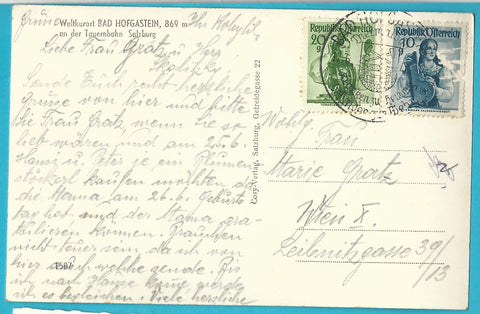 Weltkurort BAD HOFGASTEIN, 869 m
an der Tauernbahn Salzburg
Liebe Frau Gratz u. Herr
Sende Euch recht herzliche
Grüsse von hier und bitte
Sie Frau Gratz, wenn Sie so
lieb wären und am 25.6.
Hansi u. Peter je ein Blumen
stöckerl kaufen möchten da
die Mama am 26.6. Geburts
tag hat und der Mama gra-
tulieren können. Brauchen
nicht teuer sein, da ich von
hier auch welche sende. Bis
ich nach Hause komme werde
ich es begleichen. Viele herzliche
Grüsse
1507
Cosy-Verlag, Salzburg, Getreidegasse 22
Republik Österreich
20 g
Republik Österreich
10 g
BAD HOFGASTEIN
Frau
Marie Gratz
Wien X.
Leibnitzgasse 39/
13